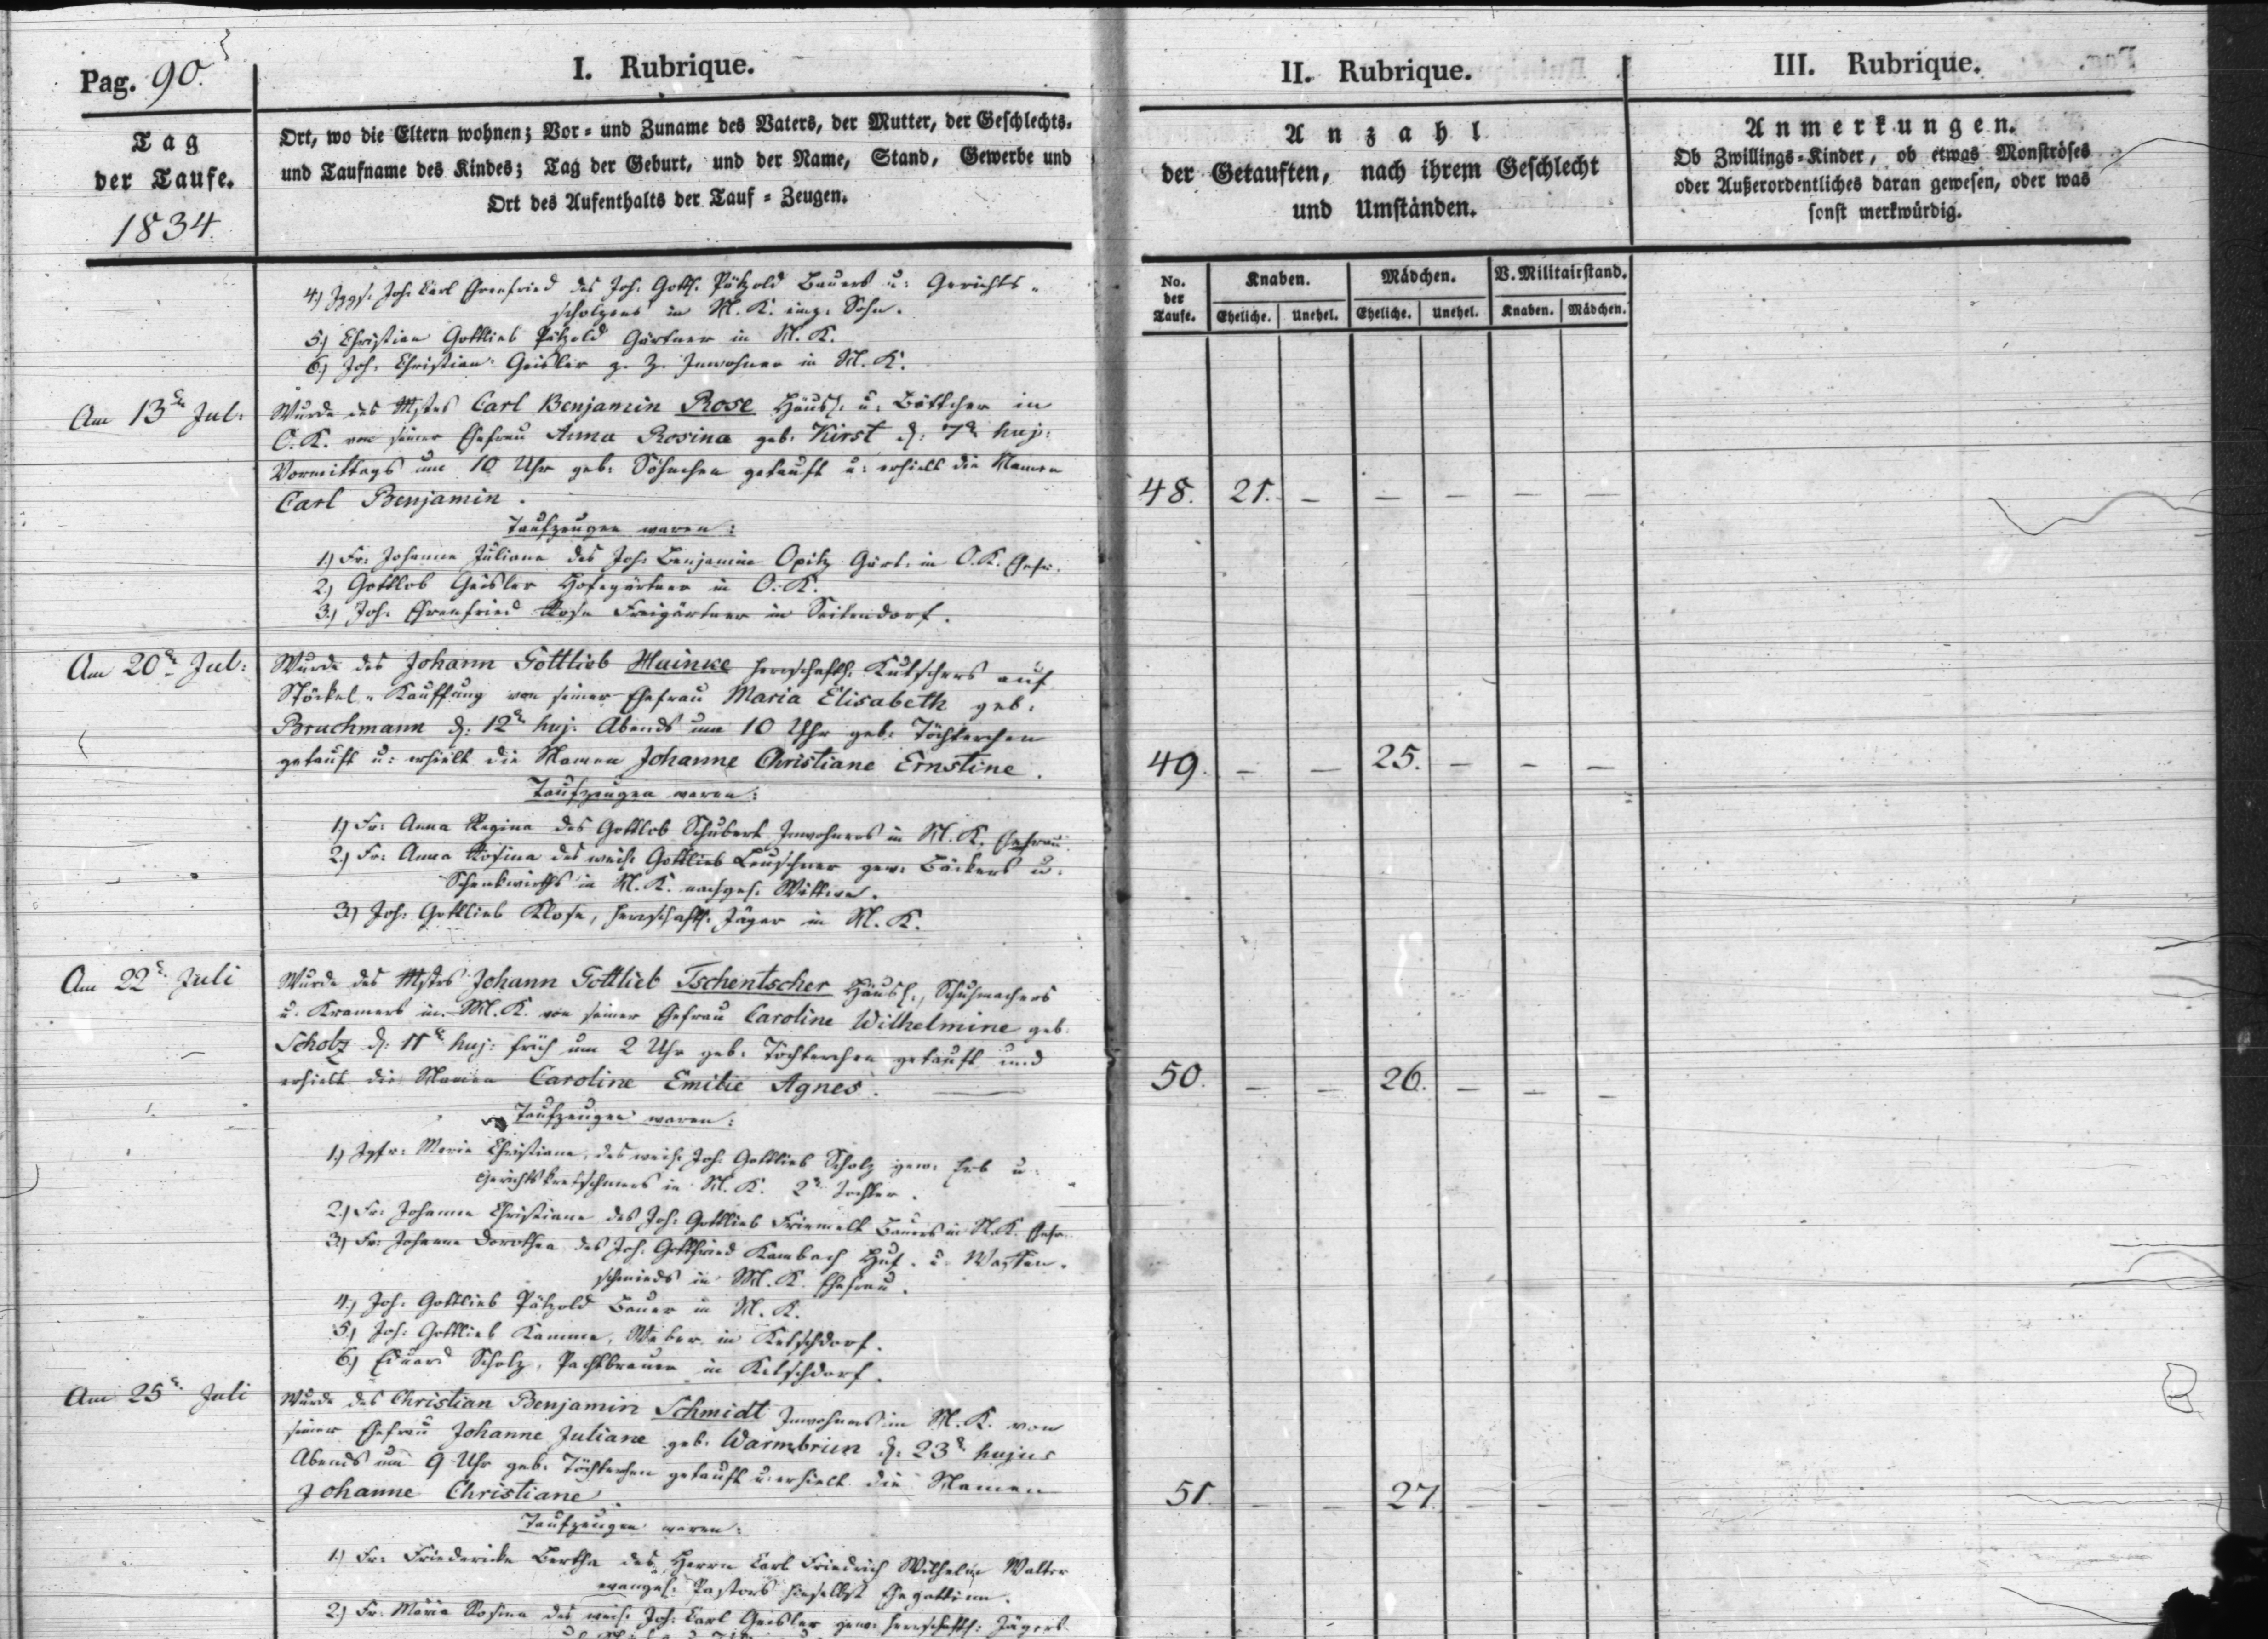 Pag. 90.
I. Rubrique.
II. Rubrique.
III. Rubrique.
Tag
der Taufe.
1834
Ort, wo die Eltern wohnen; Vor- und Zuname des Vaters, der Mutter, der Geschlechts-
und Taufname des Kindes; Tag der Geburt, und der Name, Stand, Gewerbe und
Ort des Aufenthalts der Tauf-Zeugen.
Anzahl
der Getauften, nach ihrem Geschlecht
und Umständen.
Anmerkungen.
Ob Zwillings-Kinder, ob etwas Monströses
oder Außerordentliches daran gewesen, oder was
sonst merkwürdig.
No. der Taufe.
Knaben.
Mädchen.
V. Militairstand.
Eheliche. Unehel. Eheliche. Unehel. Knaben. Mädchen.
4.) Jggs. Joh. Carl Ehrenfried des Joh. Gottl. Pätzold Bauers u. Gerichts-
scholzens in M. K. Sohn.
5.) Christian Gottlieb Pätzold Gärtner in M. K.
6.) Joh. Christian Geisler z. Z. Inwohner in M. K.
Am 13ten Jul:
Wurde des Mstrs Carl Benjamin Rose Häusl. u. Böttcher in
O. K. von seiner Ehefrau Anna Rosina geb. Kirst d. 7ten huj:
Vormittags um 10 Uhr geb. Söhnchen getauft u: erhielt die Namen
Carl Benjamin.
48. 21. – – – – –
Taufzeugen waren:
1.) Fr: Johanne Juliane des Joh: Benjamin Opitz Gärt. in O. K. Ehefr.
2.) Gottlob Geisler Hofegärtner in O. K.
3.) Joh. Ehrenfried Rose Freigärtner in Seitendorf.
Am 20ten Jul:
Wurde des Johann Gottlieb Mainke herrschaftl. Kutschers auf
Stöckel-Kauffung von seiner Ehefrau Maria Elisabeth geb.
Bruchmann d. 12ten huj. Abends um 10 Uhr geb. Töchterchen
getauft u: erhielt die Namen Johanne Christiane Ernstine.
49. – – 25. – – –
Taufzeugen waren:
1.) Fr: Anna Regina des Gottlob Schubert Inwohners in M. K. Ehefrau.
2.) Fr: Anna Rosina des weil. Gottlieb Leuschner gew. Bäckers u.
Schenkwirths in M. K. nachgel. Wittwe.
3.) Joh: Gottlieb Klose, herrschaftl. Jäger in M. K.
Am 22ten Juli
Wurde des Mstrs Johann Gottlieb Tschentscher Häusl., Schuhmachers
u. Kramers in M. K. von seiner Ehefrau Caroline Wilhelmine geb.
Scholz d. 11ten huj: früh um 2 Uhr geb. Töchterchen getauft und
erhielt die Namen Caroline Emilie Agnes.
50. – – 26. – – –
Taufzeugen waren:
1.) Jgfr: Maria Christiane, des weil. Joh. Gottlieb Scholz gew. Erb u.
Gerichtskretschmers in M. K. 2te Tochter.
2.) Fr: Johanne Christiane des Joh: Gottlieb Friemelt Bauers in N. K. Ehefr.
3.) Fr: Johanne Dorothea des Joh. Gottfried Kambach Huf- u. Waffen-
schmieds in M. K. Ehefrau.
4.) Joh. Gottlieb Pätzold Bauer in M. K.
5.) Joh: Gottlieb Kamme, Weber in Ketschdorf.
6.) Eduard Scholz, Pachtbrauer in Ketschdorf.
Am 25ten Juli
Wurde des Christian Benjamin Schmidt Inwohners in M. K. von
seiner Ehefrau Johanne Juliane geb. Warmbrun d. 23ten hujus
Abends um 9 Uhr geb. Töchterchen getauft u: erhielt die Namen
Johanne Christiane
51. – – 27. – – –
Taufzeugen waren:
1.) Fr: Friedericke Bertha des Herrn Carl Friedrich Wilhelm Walter
evangel. Pastors hieselbst Ehegattinn.
2.) Fr. Maria Rosina des weil. Joh: Carl Geisler gew. herrschaftl: Jägers